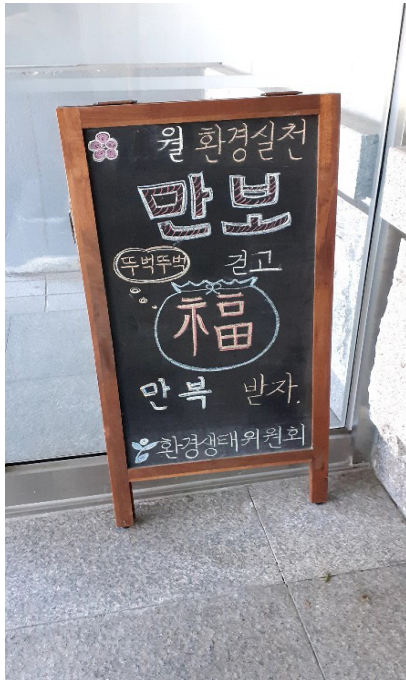 월 환경실천
만보
뚜벅뚜벅 걷고
福
만복 받자.
환경생태위원회